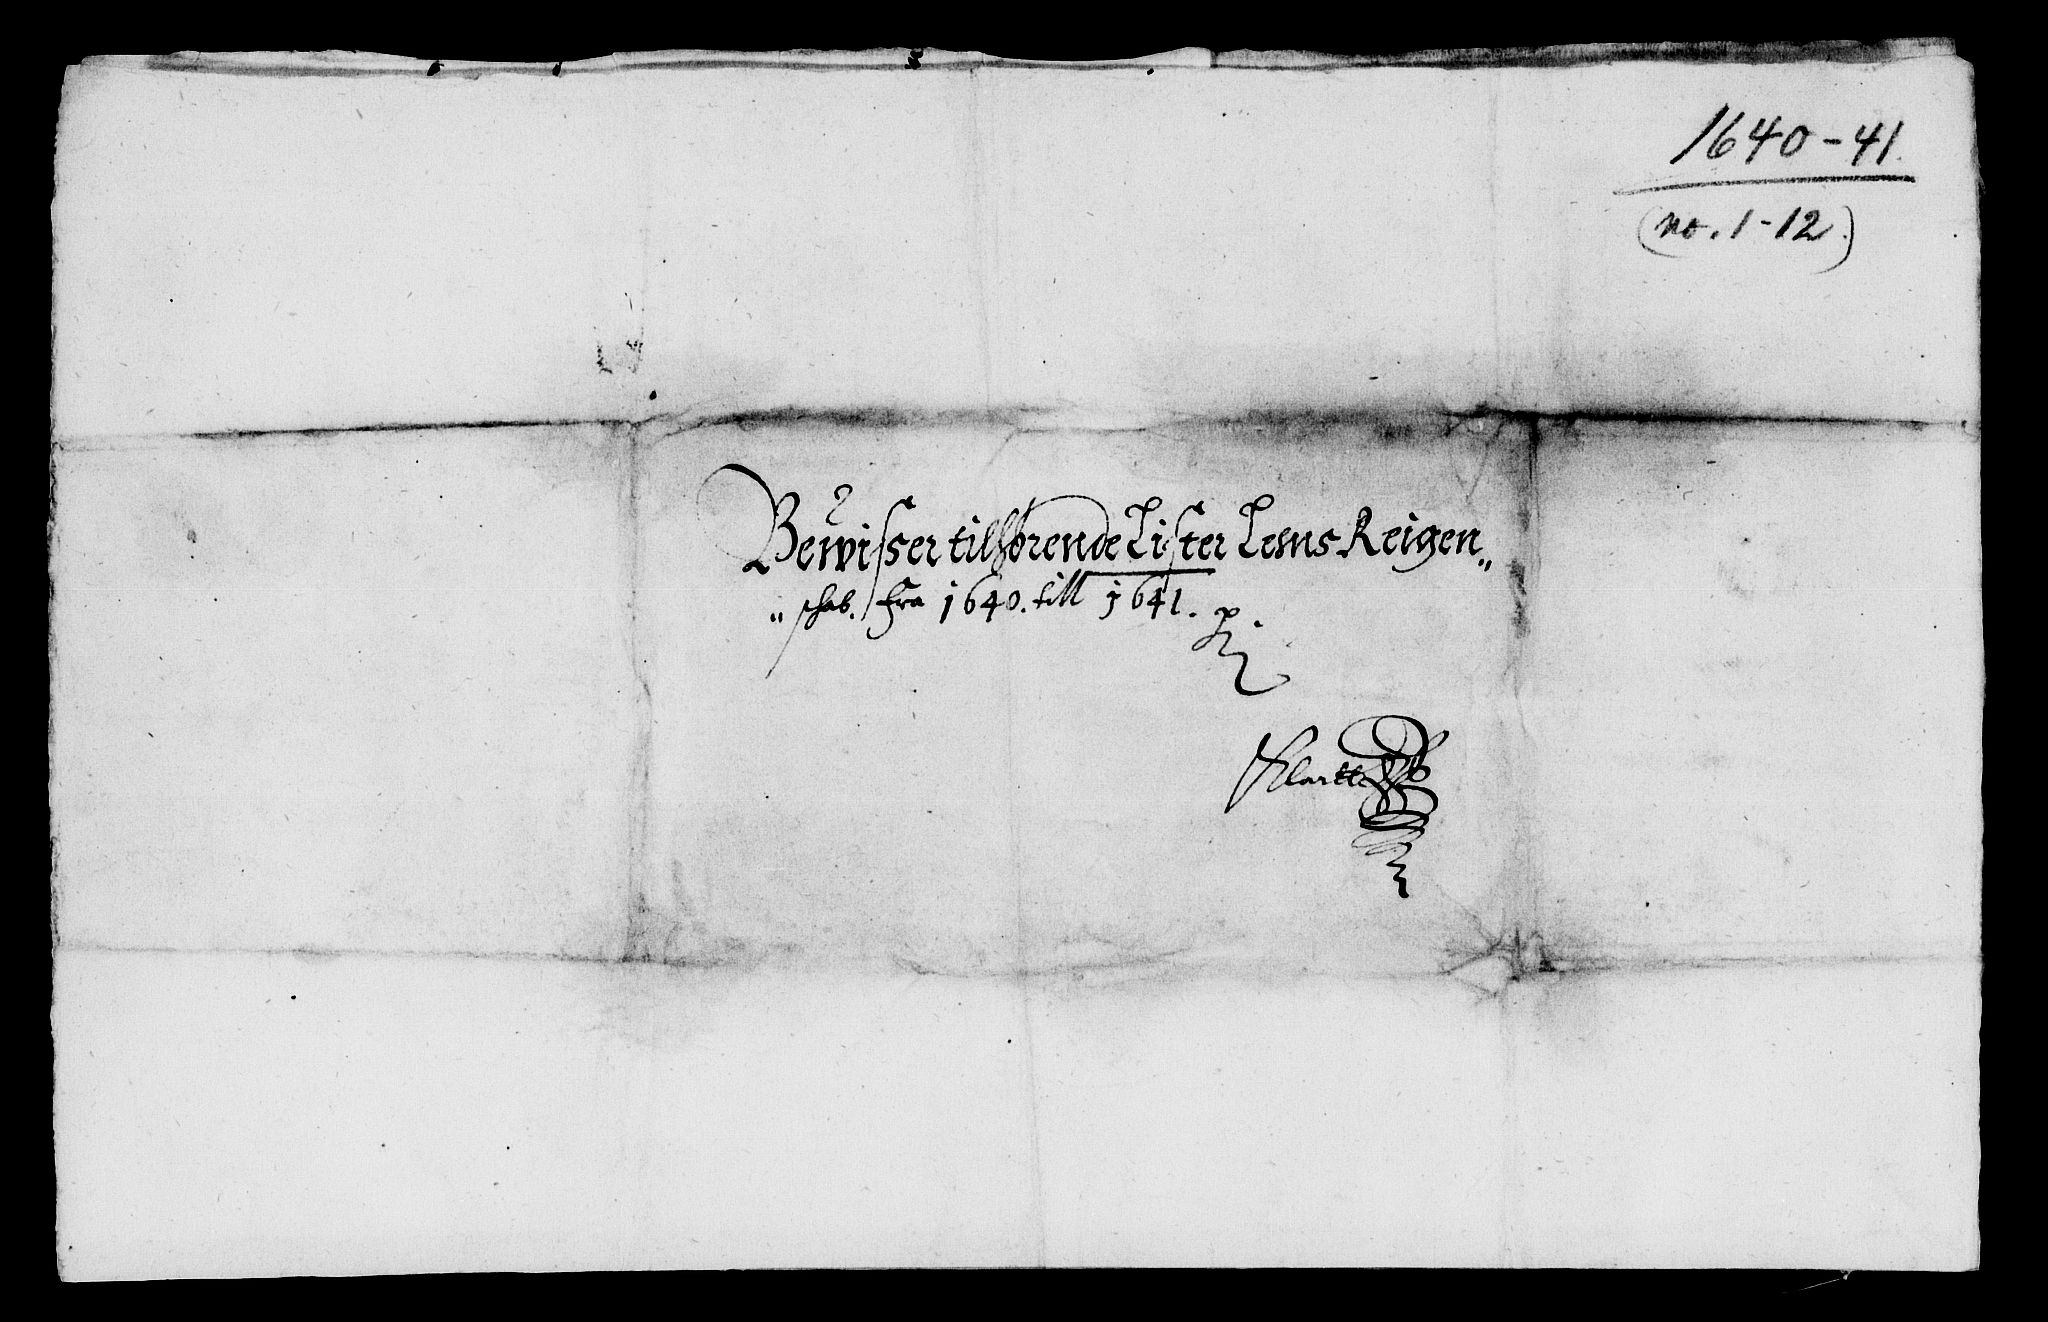 1640-41.
(no. 1-12.)
Bewisser tilhörende Lister Lehns Reigen„
„schab. fra 1640. till 1641. p
Klartt